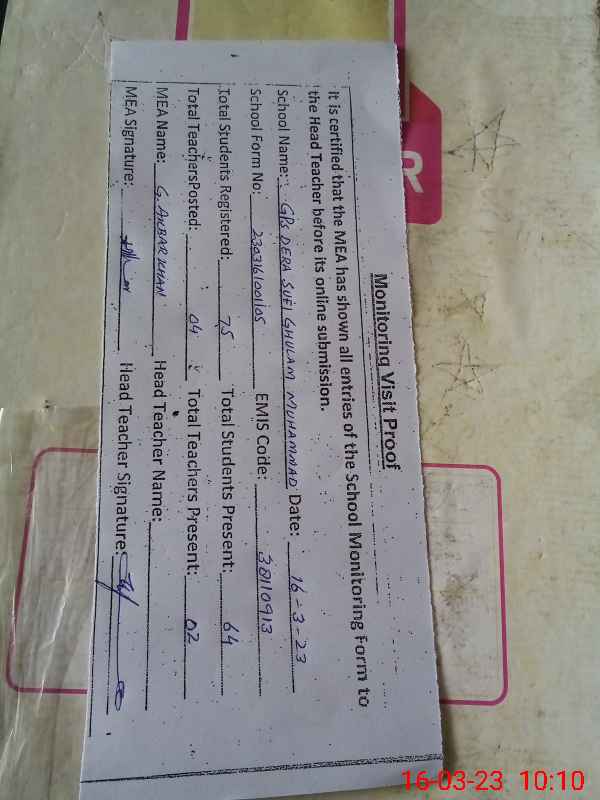 Monitoring Visit Proof
It is certified that the MEA has shown all entries of the School Monitoring Form to
the Head Teacher before its online submission.
School Name: GPS DERA SUFI GHULAM MUHAMMAD Date: 16-3-23
School Form No: 2303161001105 EMIS Code: 38110913
Total Students Registered: 75 Total Students Present: 64
Total TeachersPosted: 04 Total Teachers Present: 02
MEA Name: G. AKBAR KHAN Head Teacher Name:
MEA Signature: Head Teacher Signature:
16-03-23 10:10